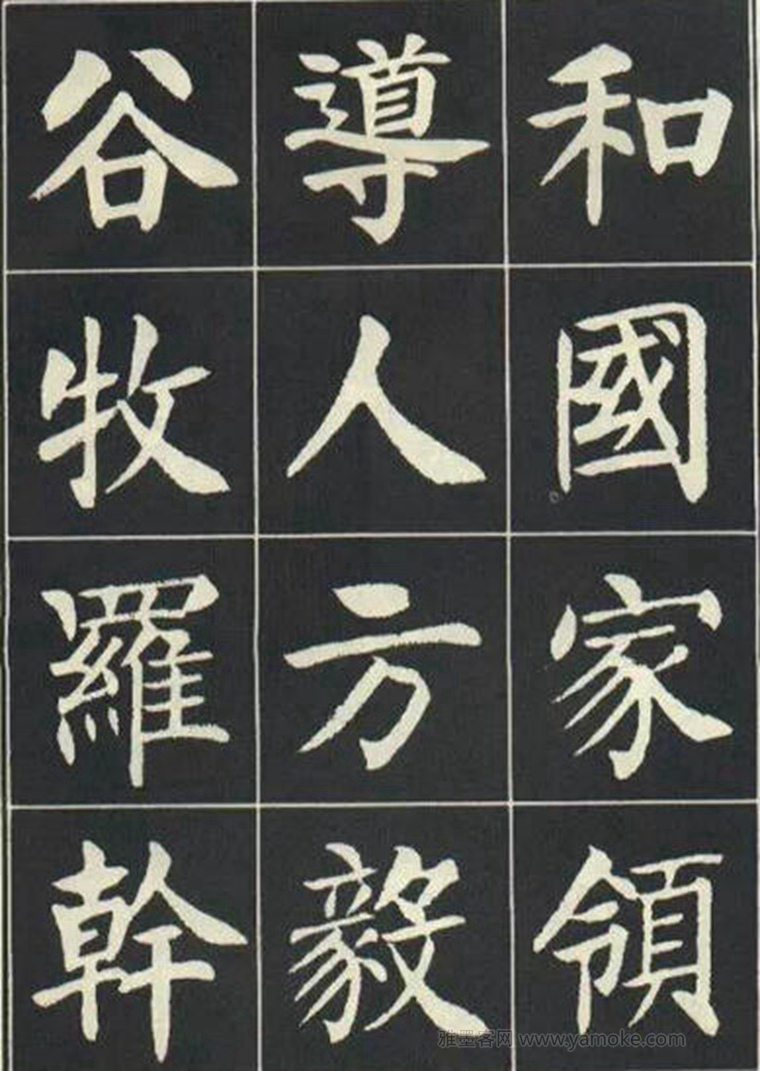 和國家領
導人方毅
谷牧羅幹
雅墨客网 www.yamoke.com